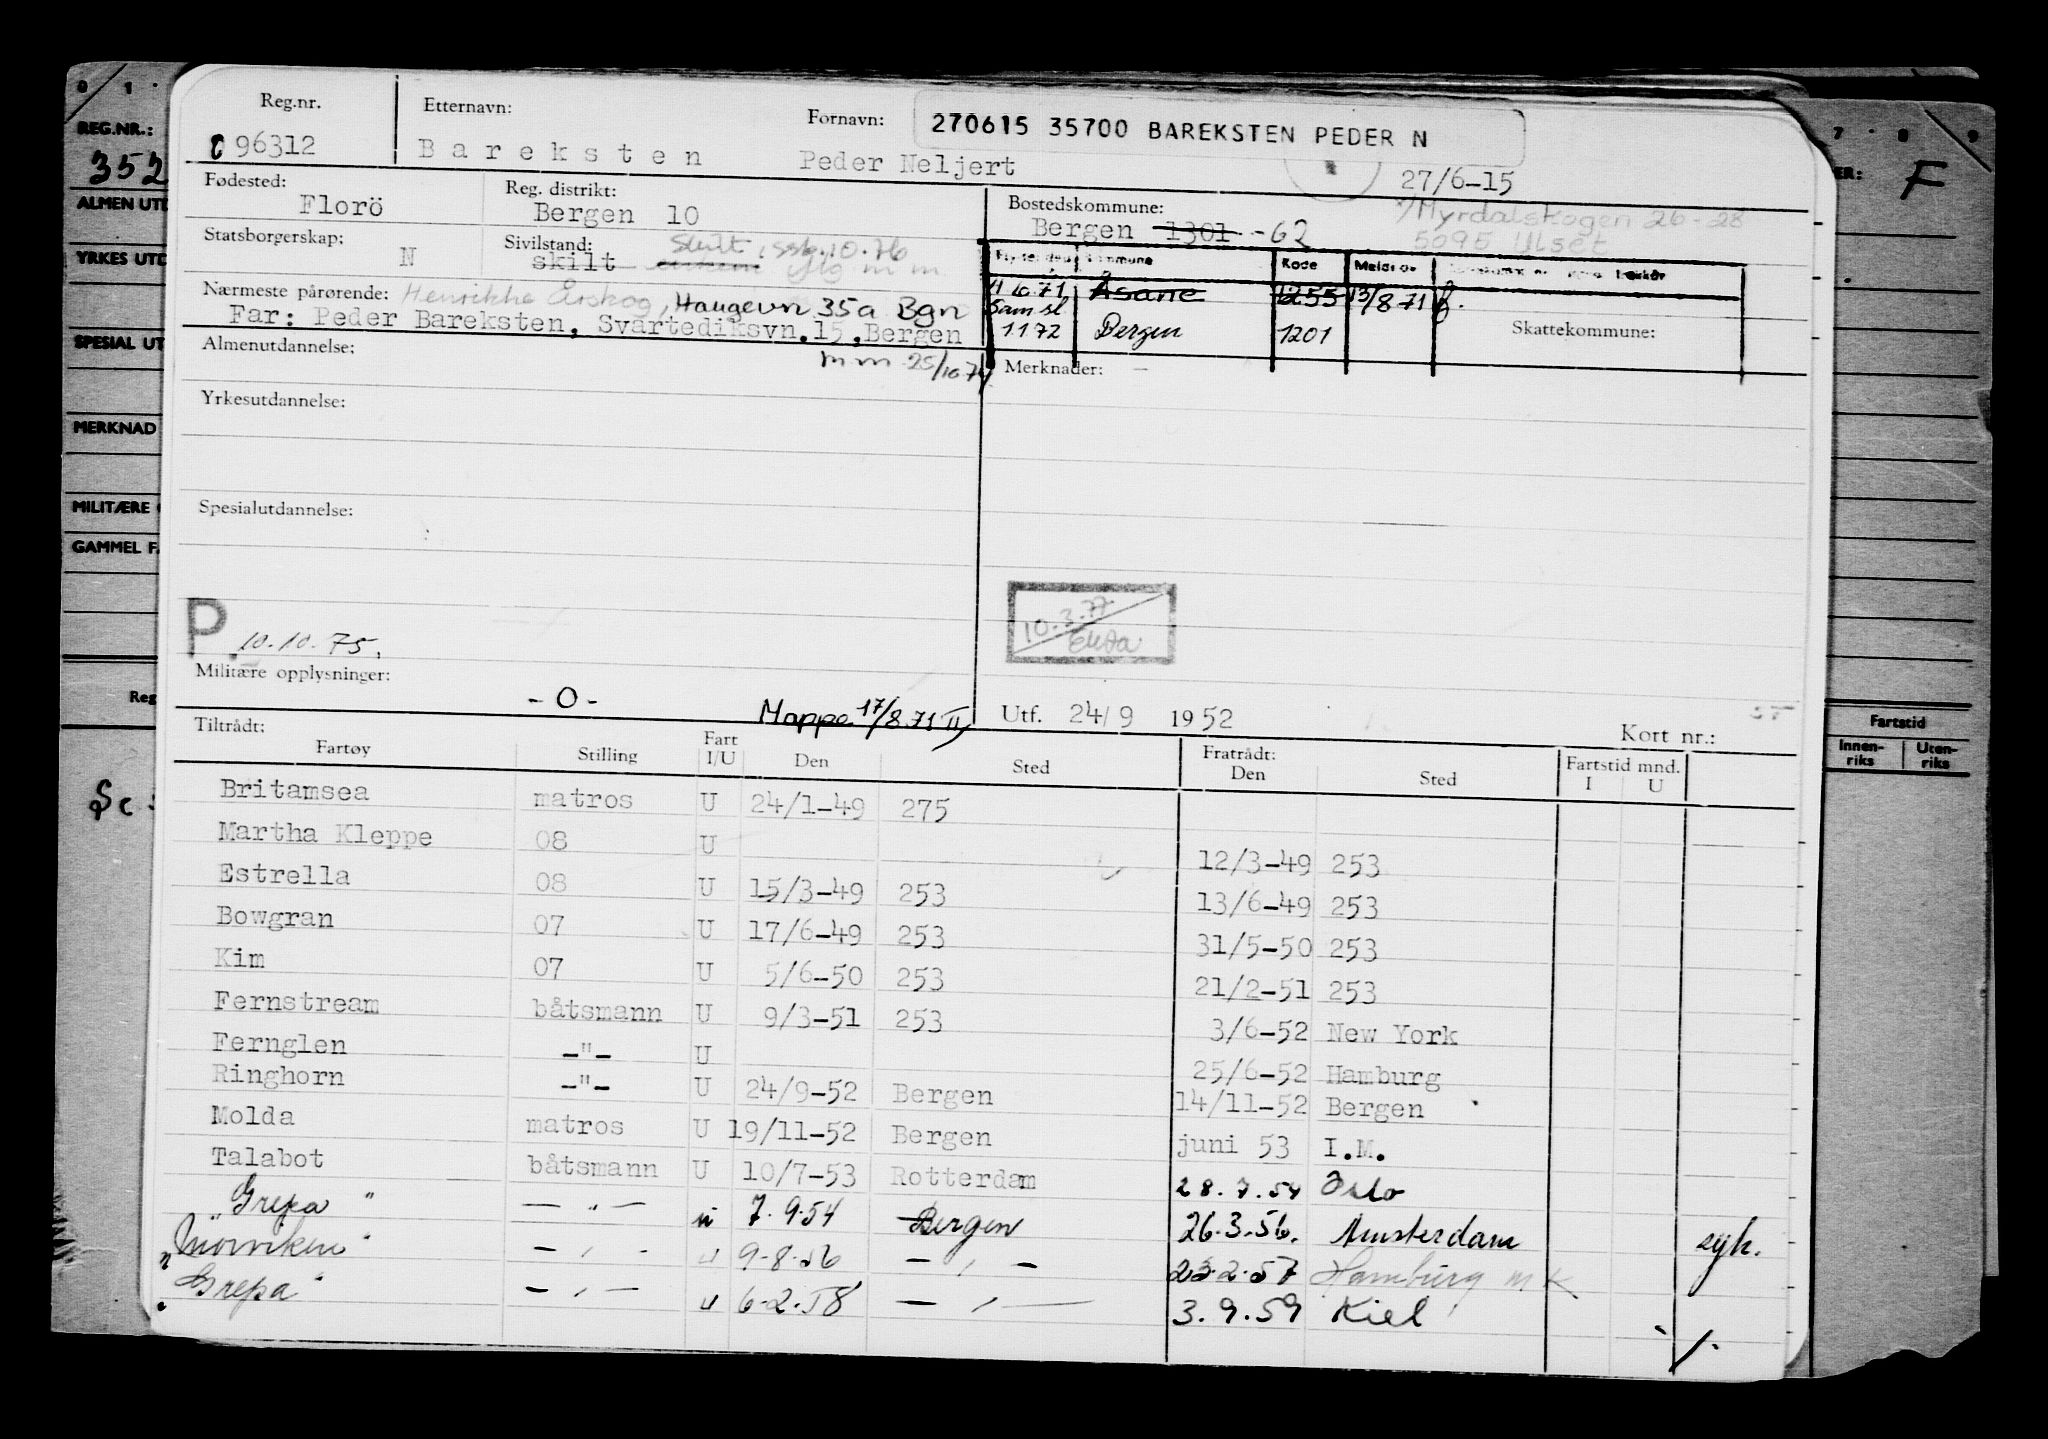 Reg.nr. Etternavn: Fornavn: 270615 35700 BAREKSTEN PEDER N
96312 Bareksten Peder Neljert 27/6-15
Fødested: Florö Reg. distrikt: Bergen 10 Bostedskommune: Bergen 1301 -62
Myrdalskogen 26-28
5095 Ulset
Statsborgerskap: N Sivilstand: skilt Skilt, ssb.10.76
Kode
11 6.71 Åsane 1255 13/8 71
Saml
1172 Bergen 1201 Skattekommune:
Nærmeste pårørende: Henrikke Årskog, Haugevn 35a Bgn
Far: Peder Bareksten, Svartediksvn.15,Bergen
mm 25/10.74
Almenutdannelse: Merknader: -
Yrkesutdannelse:
Spesialutdannelse:
P. 10.10.75.
10.3.77
Militære opplysninger: -0- Mappe 17/8.71 II
Utf. 24/9 1952 Kort nr.:
Tiltrådt: Fratrådt:
Fartøy Stilling Fart I/U Den Sted Den Sted Fartstid mnd. I U
Britamsea matros U 24/1-49 275
Martha Kleppe 08 U 12/3-49 253
Estrella 08 U 15/3-49 253 13/6-49 253
Bowgran 07 U 17/6-49 253 31/5-50 253
Kim 07 U 5/6-50 253 21/2-51 253
Fernstream båtsmann U 9/3-51 253 3/6-52 New York
Fernglen -"- U 25/6-52 Hamburg
Ringhorn -"- U 24/9-52 Bergen 14/11-52 Bergen
Molda matros U 19/11-52 Bergen juni 53 I.M.
Talabot båtsmann U 10/7-53 Rotterdam 28.7.54 Oslo
"Grepa" -"- u 7.9.54 Bergen 26.3.56. Amsterdam syk.
-"- u 9-8.56 -"- 23.2.57 Hamburg m K
"Grepa" -"- u 6-2.58 -"- 3.9.59 Kiel
REG.NR.:
352
ALMEN UTD
YRKES UTD
SPESIAL UT
MERKNAD
MILITÆRE
GAMMEL FA
Reg
ER: F
Fartstid
Innen-riks Uten-riks